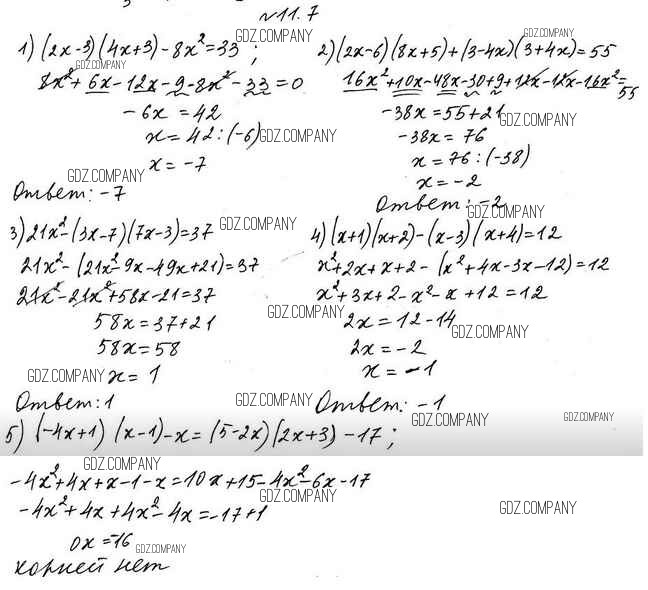 №11.7
GDZ.COMPANY
1) (2x-3)(4x+3)-8x²=33;
GDZ.COMPANY
GDZ.COMPANY
8x²+6x-12x-9-8x²-33=0
-6x=42
x=42:(-6)
GDZ.COMPANY
x=-7
GDZ.COMPANY
Ответ: -7
2) (2x-6)(8x+5)+(3-4x)(3+4x)=55
16x²+10x-48x-30+9+12x-12x-16x²=
55
-38x=55+21
GDZ.COMPANY
-38x=76
x=76:(-38)
x=-2
Ответ: -2
GDZ.COMPANY
3) 21x²-(3x-7)(7x-3)=37
GDZ.COMPANY
21x²-(21x²-9x-49x+21)=37
21x²-21x²+58x-21=37
58x=37+21
58x=58
GDZ.COMPANY
x=1
Ответ: 1
4) (x+1)(x+2)-(x-3)(x+4)=12
x²+2x+x+2-(x²+4x-3x-12)=12
x²+3x+2-x²-x+12=12
GDZ.COMPANY
2x=12-14
GDZ.COMPANY
2x=-2
x=-1
GDZ.COMPANY
Ответ: -1
GDZ.COMPANY
GDZ.COMPANY
5) (-4x+1)(x-1)-x=(5-2x)(2x+3)-17;
GDZ.COMPANY
-4x²+4x+x-1-x=10x+15-4x²-6x-17
GDZ.COMPANY
-4x²+4x+4x²-4x=-17+1
GDZ.COMPANY
0x=-16
GDZ.COMPANY
корней нет